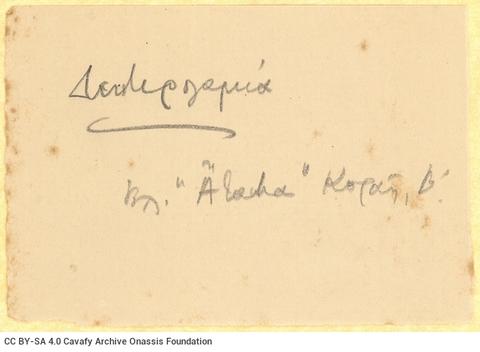 Δευτερογαμία
Βλ. "Ἄτακτα" Κοραῆ, Β'.
CC BY-SA 4.0 Cavafy Archive Onassis Foundation